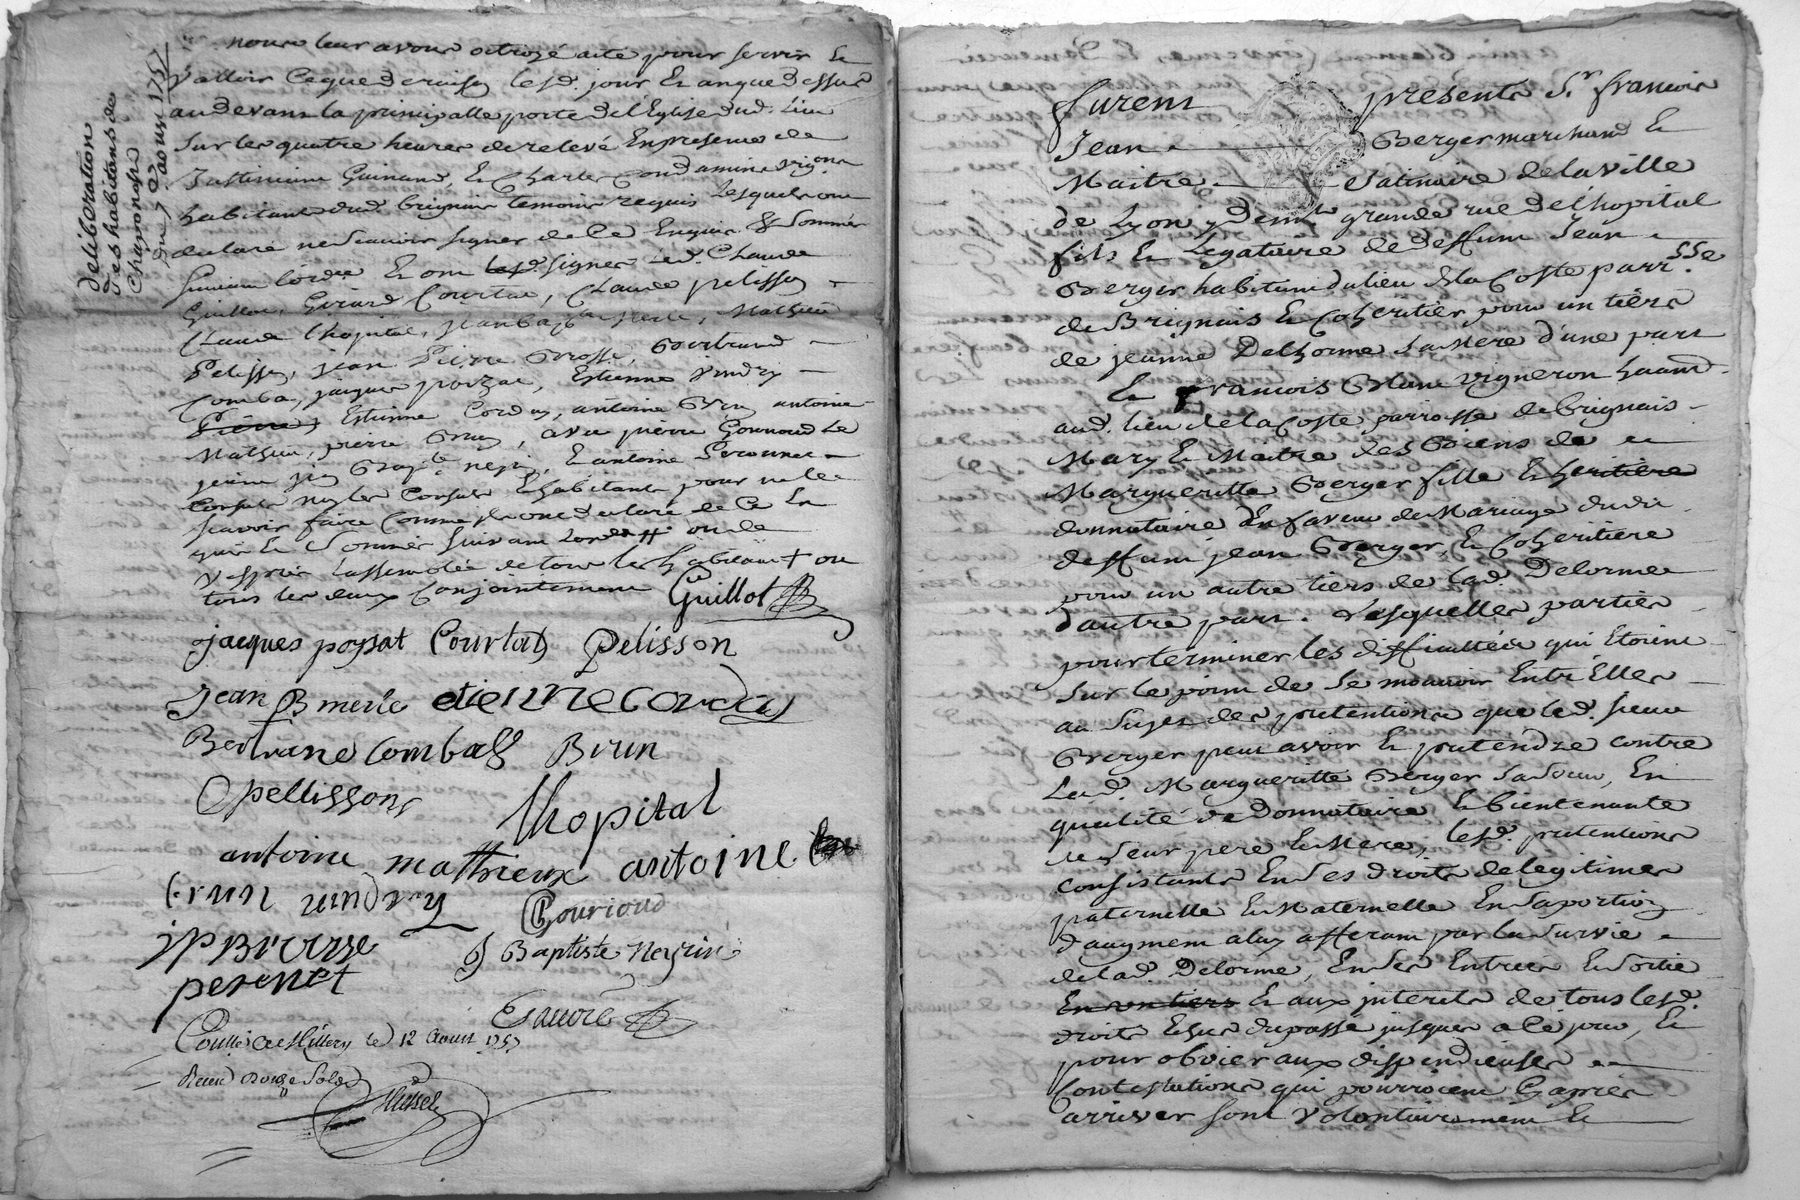 deliberation
des habitans de
Chaponost
du 7 aoust 1757
nous leur avons octroyé acte pour servir Et
valloir Ceque de raison lesd. jour Et an que dessus
au devant la principalle porte de l'Eglise dud. lieu
sur les quatre heures de relevé En presence de
Justinien Guinand, Et Charles Condamin vigons
habitants dud. brignais temoins requis lesquels ont
declaré ne Scavoir signer de ce Enquis & Sommés
suivant l'ordce Et ont signés led. Claude
Guillot, Girard Courtat, Claude pelisson
Claude lhopital, Jean bapte Merle, Mathieu
Pelisson, jean Pierre Brosse, Bertrand
Comba, jacques poyzat, Estienne Vindry
Pierre, Estienne Corday, antoine Brun antoine
Mathieu, pierre Brun, avec pierre Gourioud le
jeune jn Bapte neyrin, Et antoine Peronnet
Consuls non les Consuls Et habitants pour ne le
scavoir faire Comme ils ont declaré de Ce En
quis Et Sommés suivant lord
tous les deux Conjointement Guillot
jacques poysat Courtat Pelisson
Jean B merle etienne corday
Bertrane Combas Brun
C pellisson
lhopital
antoine mathieux antoine
brun vindry Gourioud
J P Brosse J Baptiste Neyrin
perenet
Controllé a St Millery le 12 Aoust 1757
Receu Douze Sols
furent presents Sr. francois
Jean Berger marchand Et
Maitre Satinaire de la ville
de Lyon y demt grande rue de l'hopital
fils Et Legataire de deffunt Jean
Berger habitant du lieu de la Coste parrsse
de Brignais Et Coheritier pour un tiers
de jeanne Delhorme sa Mere d'une part
Et francois Blanc vigneron habitant
aud. lieu de la Coste parroisse de brignais
Mary Et Maitre des Biens de
Margueritte Berger fille Et heritiere
donnataire En faveur de Mariage dudit
deffunt jean Berger, Et Coheritiere
pour un autre tiers de lad. Delorme
d'autre part. Lesquelles parties
pour terminer les difficultés qui Etoient
sur le point de se mouvoir Entr'Elles
au Sujet des pretentions que led. sieur
Berger peut avoir Et pretendre contre
Lad. Margueritte Berger sa soeur, En
qualité de donnataire Et bientenante
de leur pere Et Mere, lesd. pretentions
consistants En ses droits de legitimes
paternelle Et Maternelle En sa portion
d'augment a luy afferant par la Survie
de lad. Delorme, En ses Entrées Et sortie
En un tiers Et aux interets de tous lesd.
droits Echus du passé jusques a Ce jour, Et
pour obvier aux dispendieuses
Contestations qui pourroient Comme
arriver sont volontairement Et